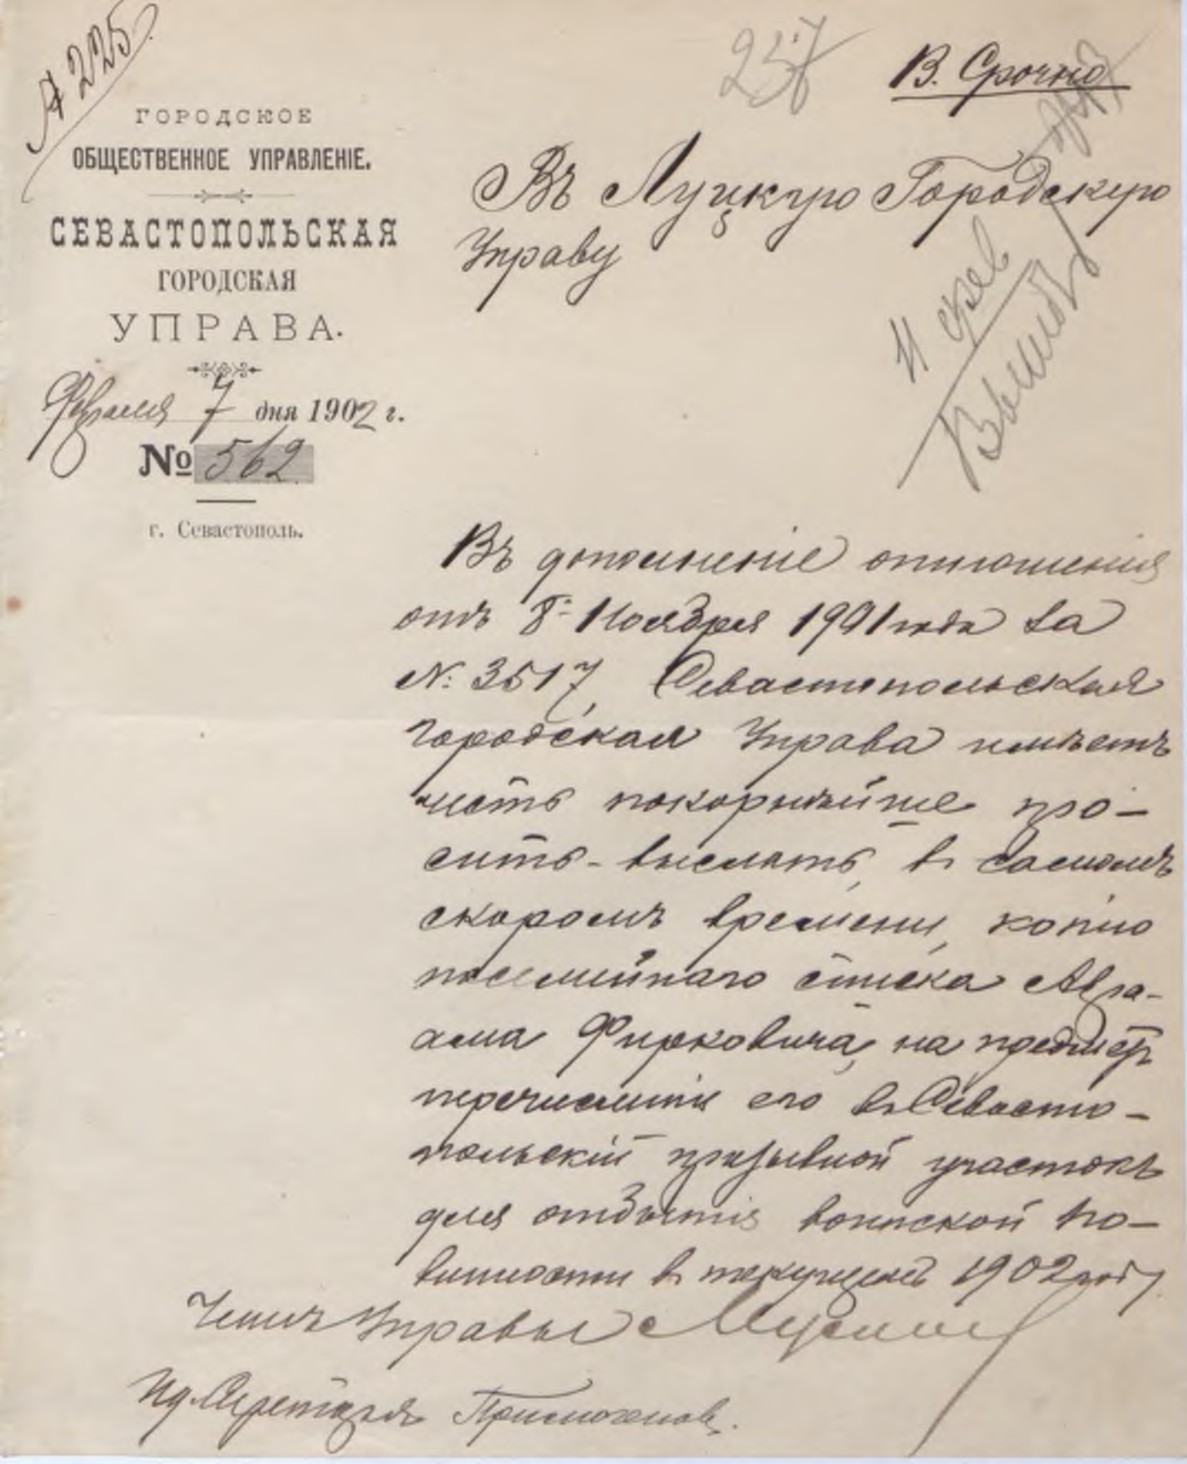 № 225
257
В. Срочно
ГОРОДСКОЕ
ОБЩЕСТВЕННОЕ УПРАВЛЕНІЕ.
СЕВАСТОПОЛЬСКАЯ
ГОРОДСКАЯ
УПРАВА.
Февраля 7 дня 1902 г.
№ 562
г. Севастополь.
Въ Луцкую Городскую
Управу
11 фев
Въ дополненіе отношенія
отъ 8 Ноября 1901 года за
№ 3517, Севастопольская
Городская Управа имѣетъ
честь покорнѣйше про-
сить выслать, въ самомъ
скоромъ времени, копію
посемейнаго списка Авра-
ама Фирковича, на предметъ
перечисленія его въ Севасто-
польскій призывной участокъ
для отбытія воинской по-
винности въ текущемъ 1902 году.
Членъ Управы
Ид. Секретаря